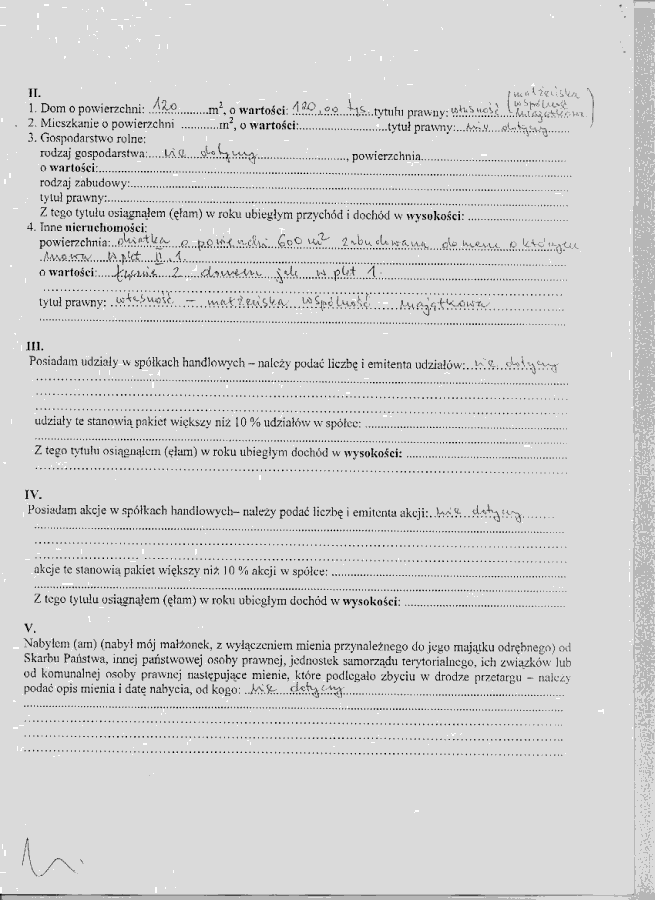 II.
1. Dom o powierzchni: 120 m², o wartości: 120,00 tys. tytułu prawny: własność (małżeńska wspólność majątkowa)
2. Mieszkanie o powierzchni ........m², o wartości:........tytuł prawny: nie dotyczy
3. Gospodarstwo rolne:
rodzaj gospodarstwa: nie dotyczy, powierzchnia
o wartości:
rodzaj zabudowy:
tytuł prawny:
Z tego tytułu osiągnąłem (ęłam) w roku ubiegłym przychód i dochód w wysokości:
4. Inne nieruchomości:
powierzchnia: działka o powierzchni 600 m² zabudowana domem o którym
mowa w pkt II. 1.
o wartości: łącznie z domem jak w pkt 1.
tytuł prawny: własność – małżeńska wspólność majątkowa
III.
Posiadam udziały w spółkach handlowych – należy podać liczbę i emitenta udziałów: nie dotyczy
udziały te stanowią pakiet większy niż 10 % udziałów w spółce:
Z tego tytułu osiągnąłem (ęłam) w roku ubiegłym dochód w wysokości:
IV.
Posiadam akcje w spółkach handlowych– należy podać liczbę i emitenta akcji: nie dotyczy
akcje te stanowią pakiet większy niż 10 % akcji w spółce:
Z tego tytułu osiągnąłem (ęłam) w roku ubiegłym dochód w wysokości:
V.
Nabyłem (am) (nabył mój małżonek, z wyłączeniem mienia przynależnego do jego majątku odrębnego) od
Skarbu Państwa, innej państwowej osoby prawnej, jednostek samorządu terytorialnego, ich związków lub
od komunalnej osoby prawnej następujące mienie, które podlegało zbyciu w drodze przetargu – należy
podać opis mienia i datę nabycia, od kogo: nie dotyczy